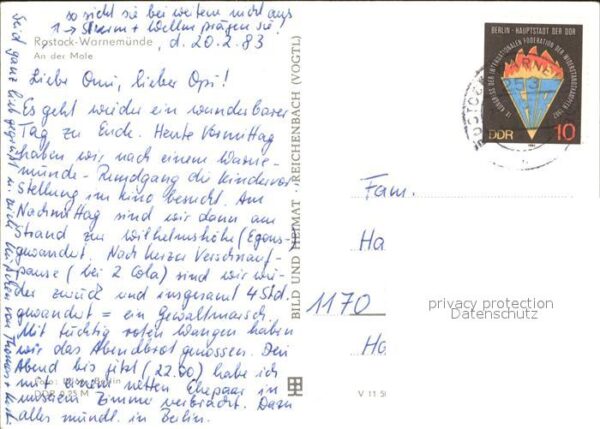 so sieht sie bei weitem nicht aus
1 → Sturm + Wellen prägen sie!
Rostock-Warnemünde, d. 20.2.83
An der Mole
Liebe Omi, lieber Opi!
Es geht wieder ein wunderbarer
Tag zu Ende. Heute Vormittag
haben wir nach einem Warne-
münde-Rundgang die Kindervor-
stellung im Kino besucht. Am
Nachmittag sind wir dann am
Strand zur Wilhelmshöhe
gewandert. Nach kurzer Verschnauf-
pause (bei 2 Cola) sind wir wie-
der zurück und insgesamt 4 Std.
gewandert = ein Gewaltmarsch.
Mit tüchtig roten Wangen haben
wir das Abendbrot genossen. Den
Abend bis jetzt (22.00) habe ich
mit einem netten Ehepaar in
unserem Zimmer verbracht. Dazu
alles mündl. in Berlin.
DDR 0,25 M
Seid ganz lieb gegrüßt u. von Thomas +
BILD UND HEIMAT REICHENBACH (VOGTL)
V 11 50
BERLIN - HAUPTSTADT DER DDR
IX. KONGRESS DER INTERNATIONALEN FÖDERATION DER WIDERSTANDSKÄMPFER
DDR 10
Fam.
Ha
1170
Ho
privacy protection
Datenschutz